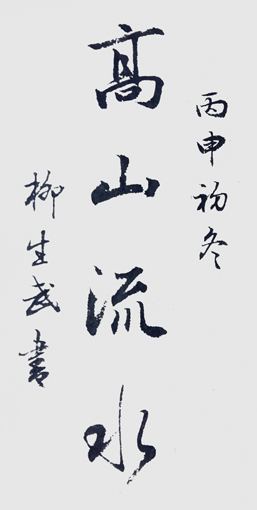 丙申初冬
高山流水
柳生武書